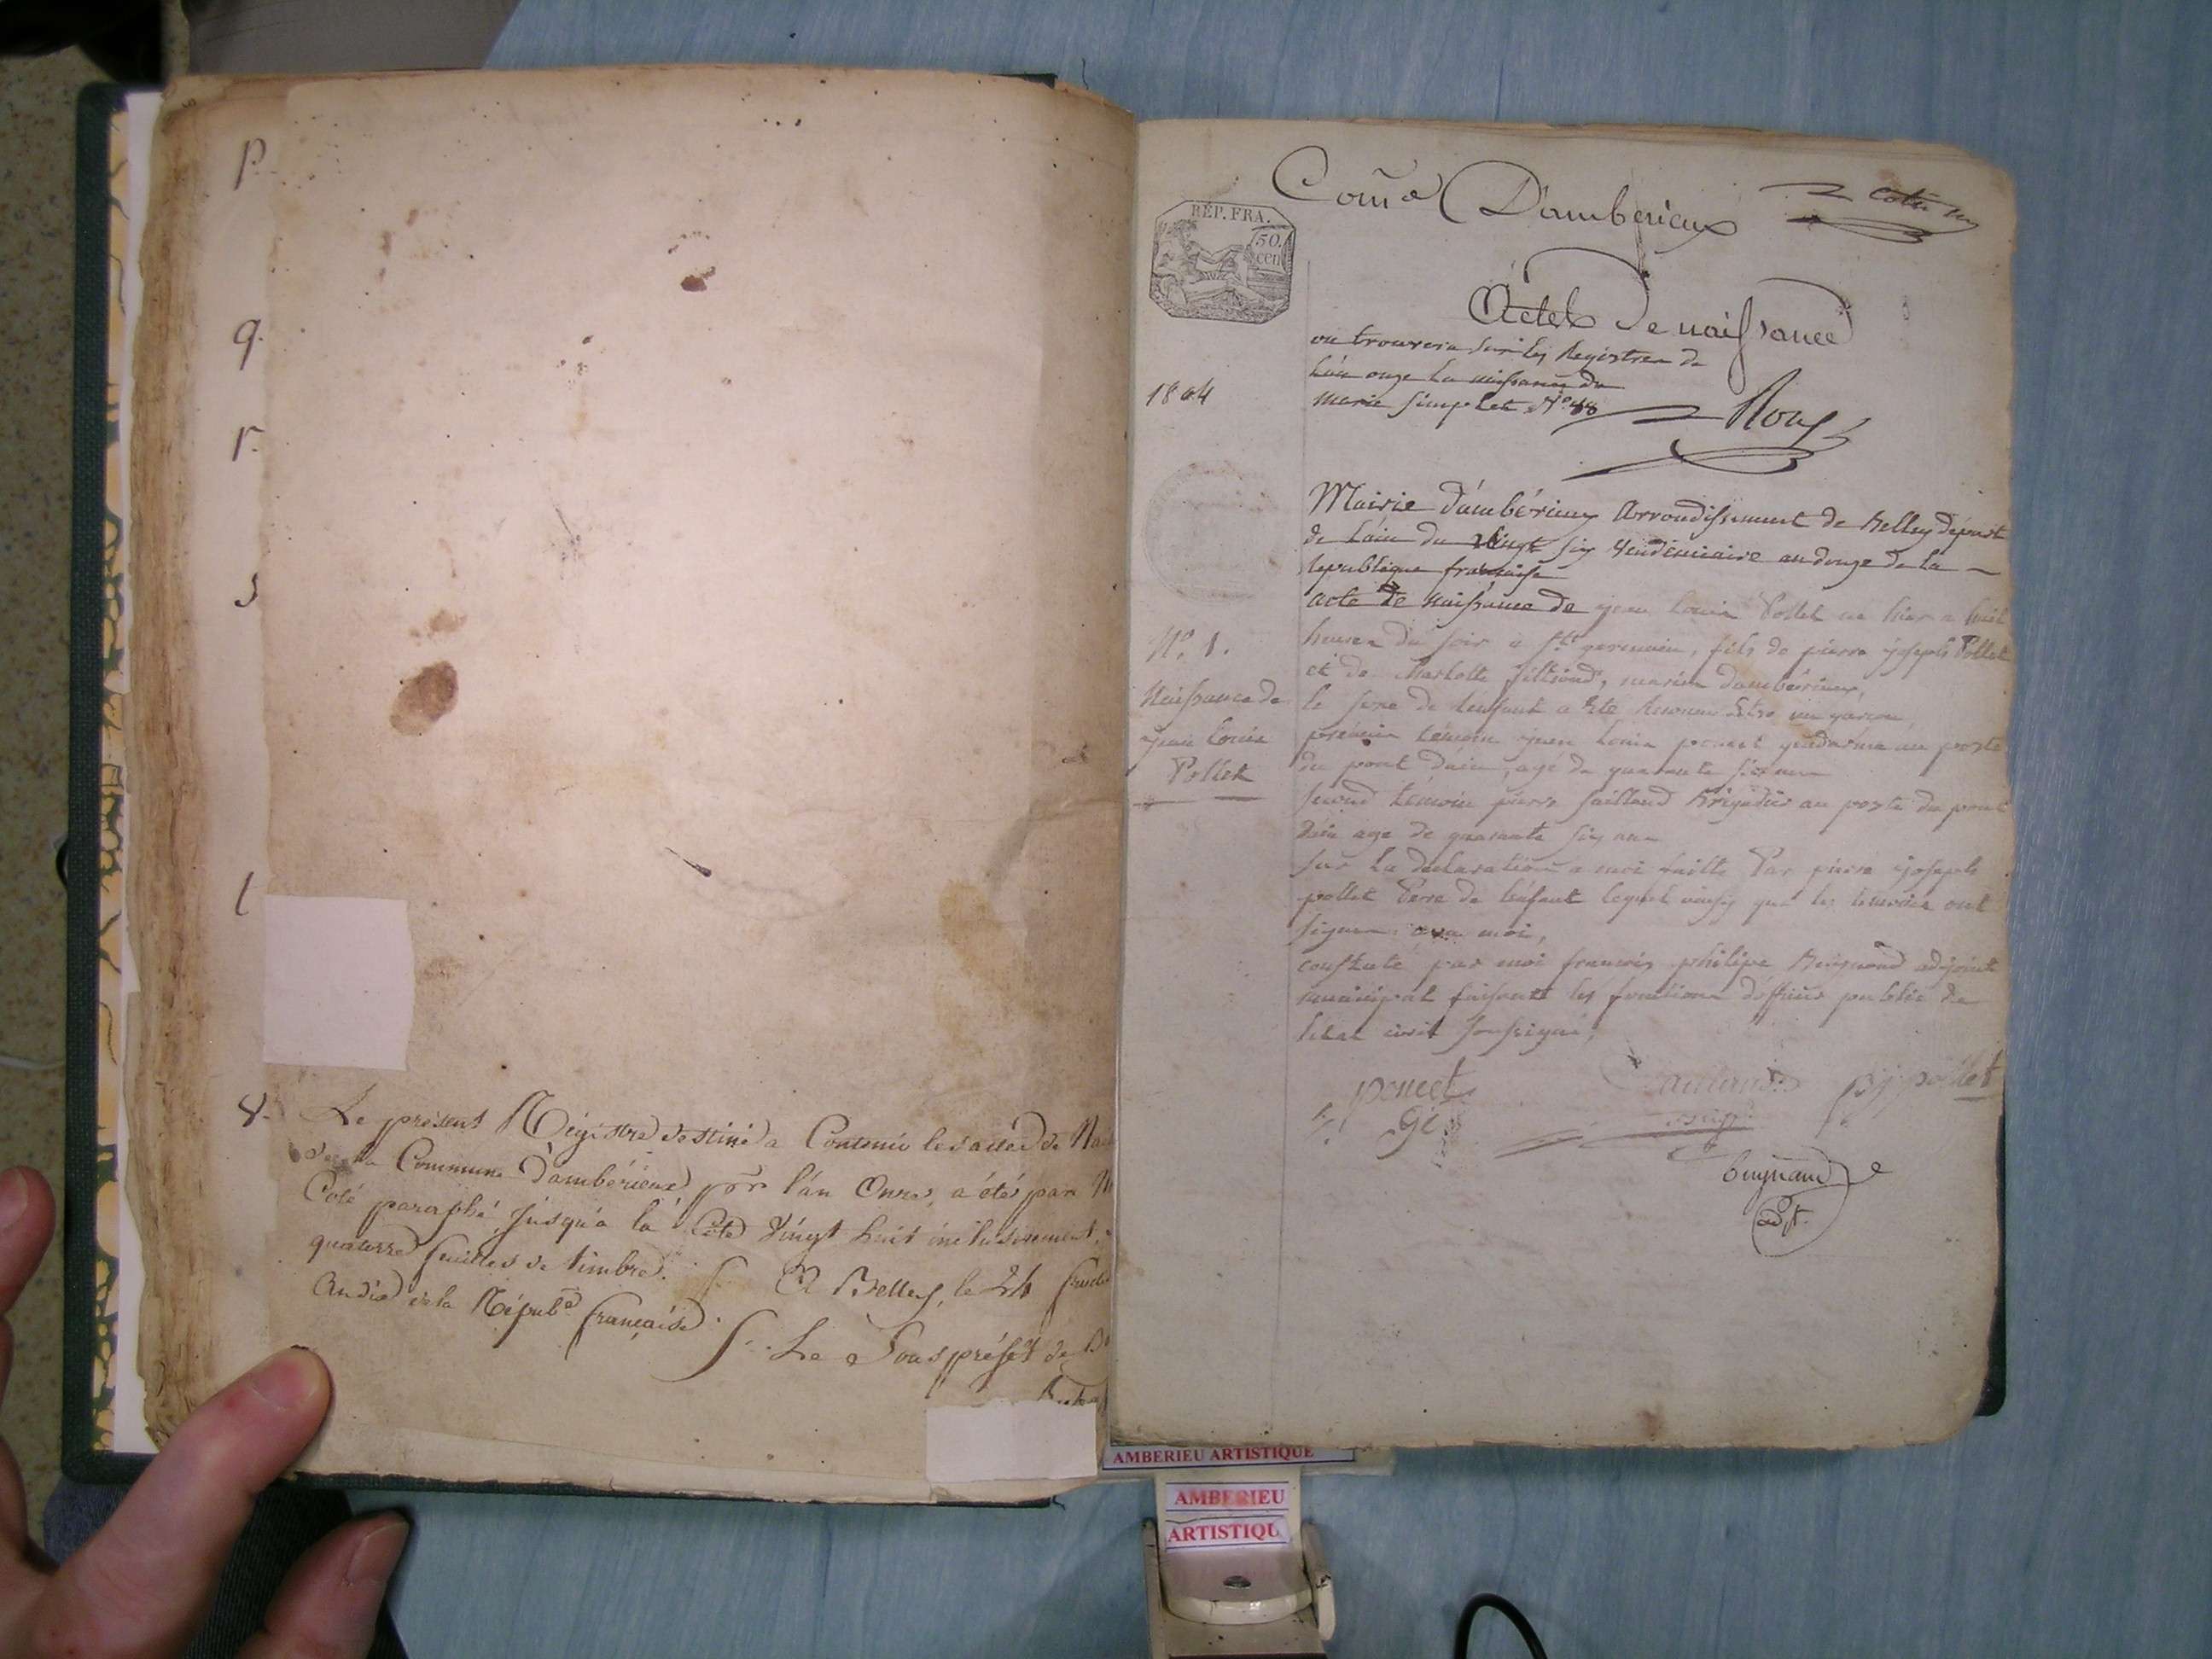 p.
q.
r.
s
t
v.
Le présent Régistre destiné a Contenir les actes de
de la Commune d'ambérieux pour l'an Onze, a été par
Coté paraphé jusqu'a la Cote Vingt huit inclusivement,
quatorze feuilles de timbre. A Belley, le 24
an dix de la Répub.e française.
Le Sous préfet de
Com.e D'amberieux
RÉP. FRA.
50.
cen
Actes de naissance
on trouvera sur les Registres de
l'an onze la naissance de
marie simplet N.o 48
1804
Roux
Mairie d'ambérieux arrondissement de Belley départ
de l'ain du vingt six Vendémiaire an douze de la
republique française
acte de naissance de jean louis Pollet né hier a huit
heures du soir a st germain, fils de pierre joseph Pollet
et de Charlotte, mariés d'ambérieux,
N.o 1.
Naissance de
jean louis
Pollet
le sexe de l'enfant a été reconnu être un garçon,
prémier témoin jean louis poncet gendarme au poste
du pont d'ain, agé de quarante six ans
second témoin pierre sailland brigadier au poste du pont
d'ain agé de quarante six ans
sur la déclaration a moi faitte Par pierre joseph
pollet Perre de l'enfant lequel ainsy que les temoins ont
signés avec moi,
constaté par moi francois philipe adjoint
municipal faisant les fonctions d'officier public de
l'etat civil soussigné,
poncet
pj pollet
adjt.
AMBERIEU ARTISTIQUE
AMBERIEU
ARTISTIQU